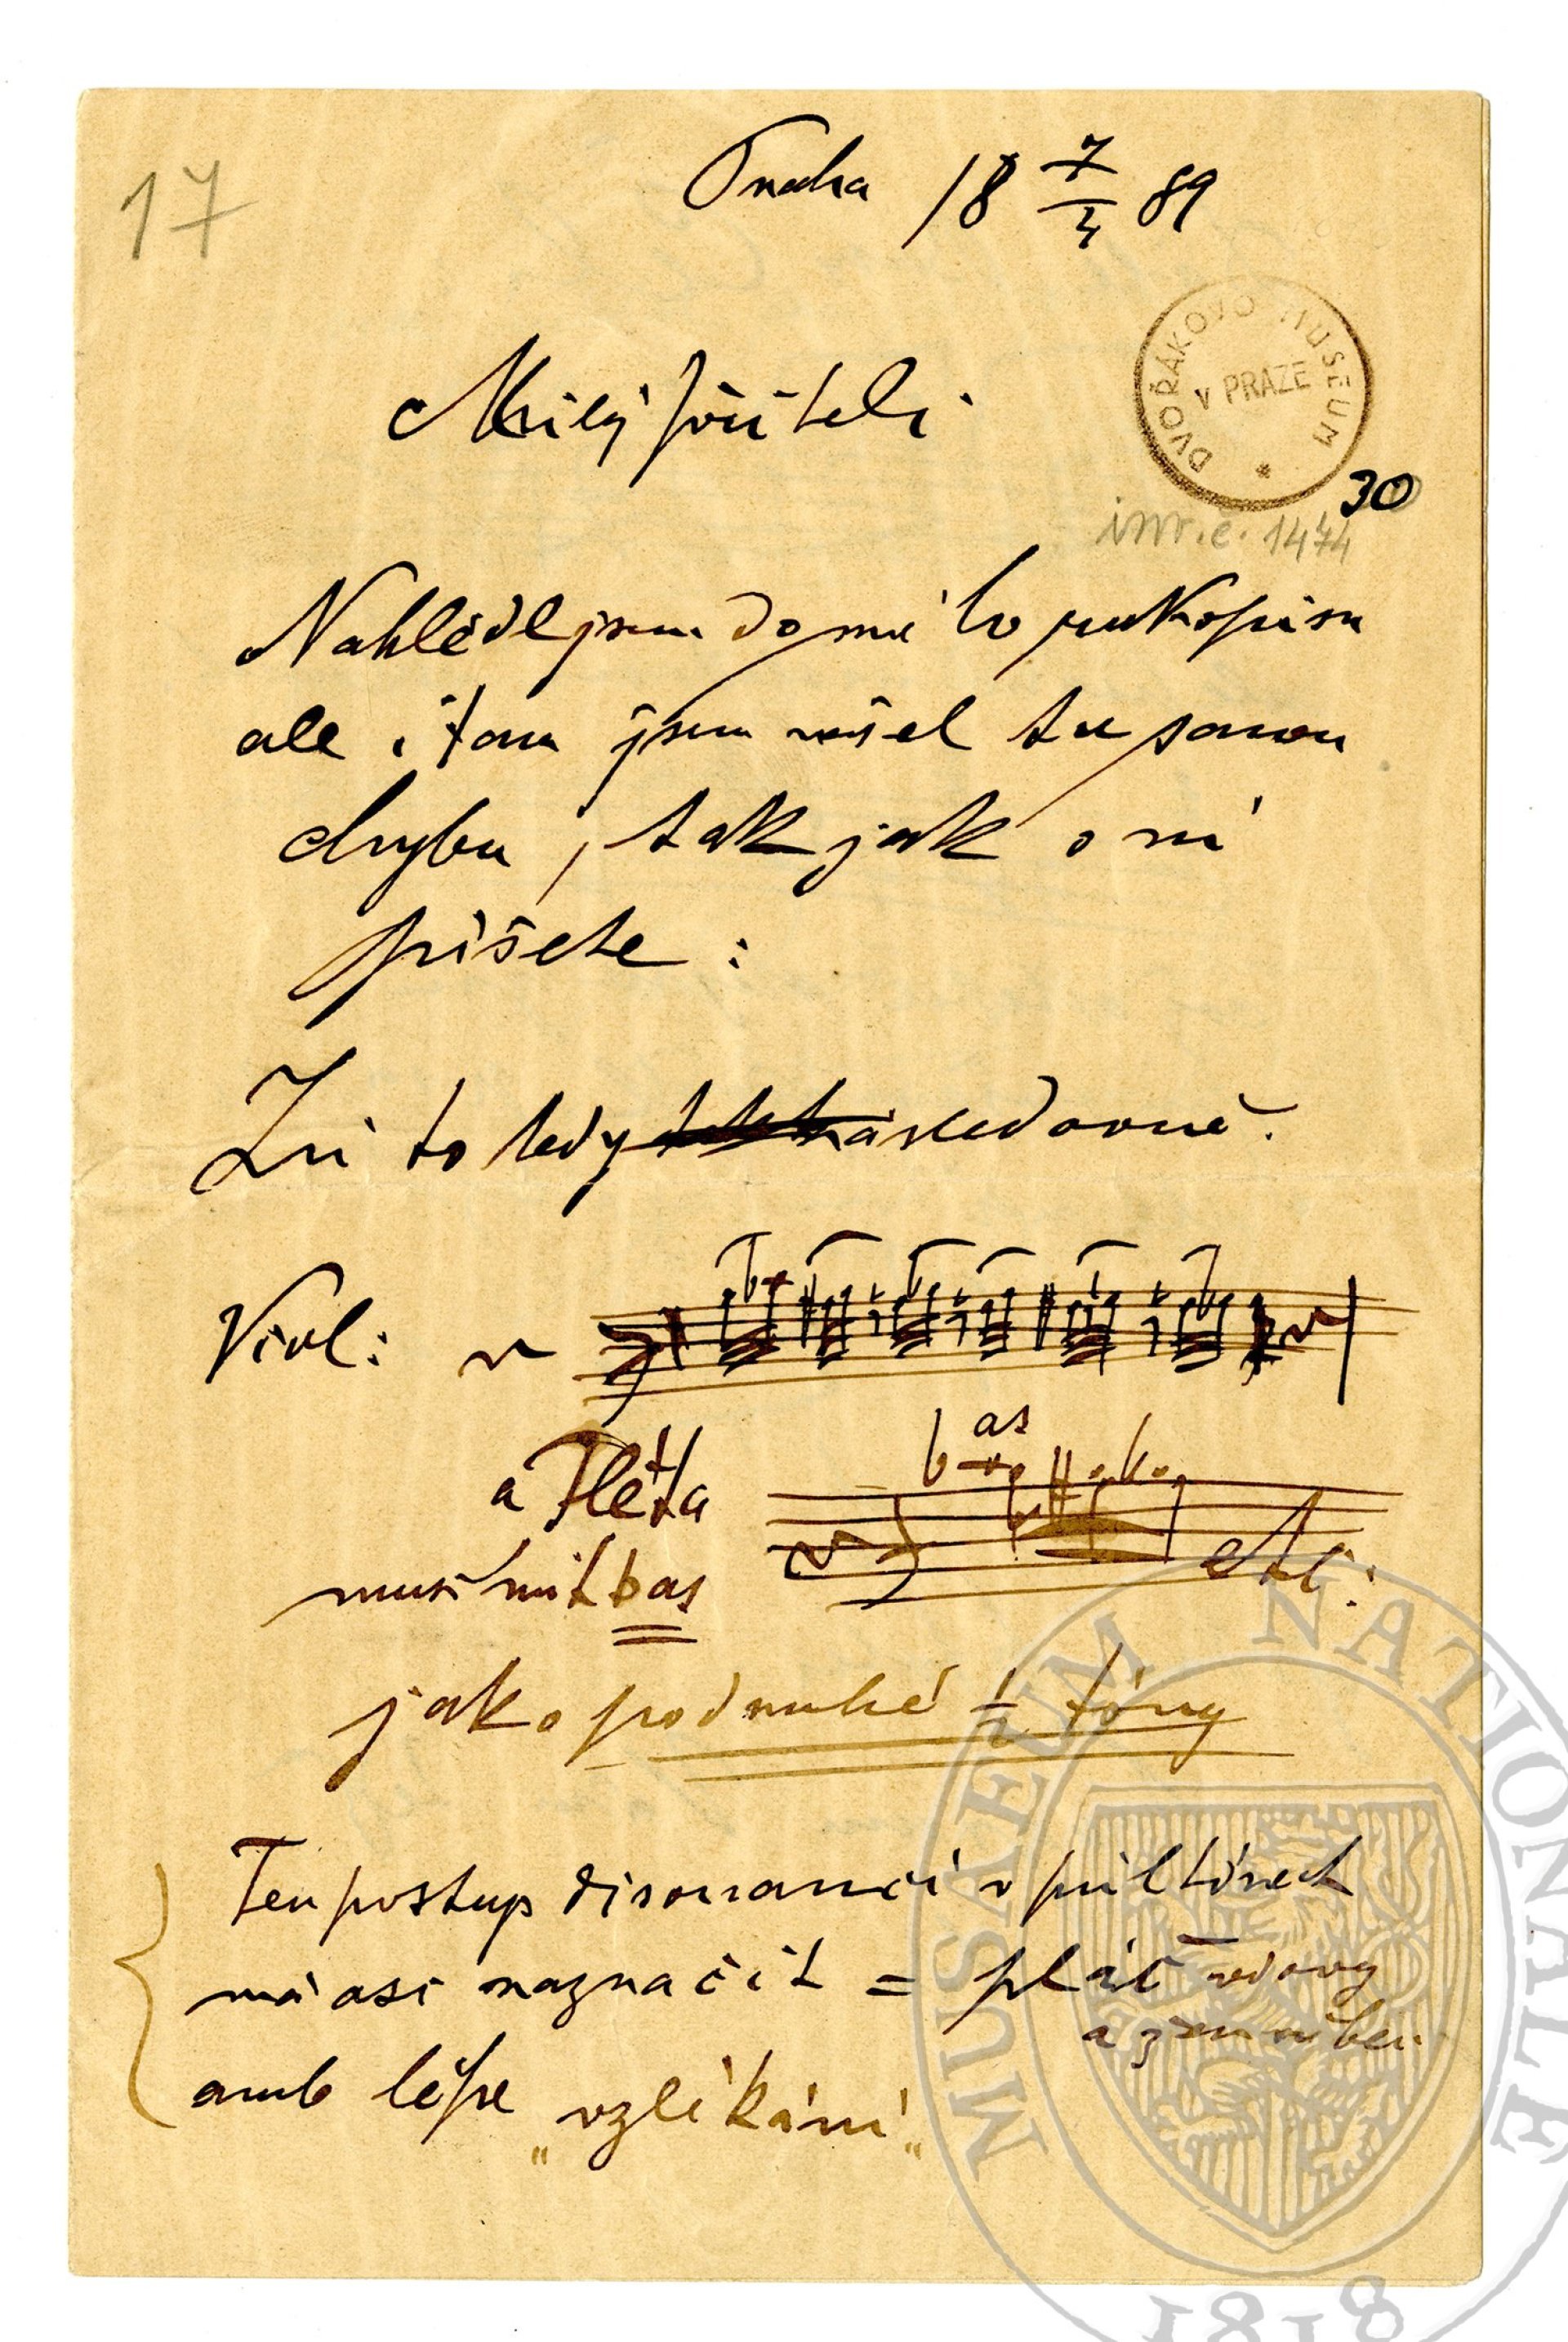 17
Praha 18 7/4 89
DVOŘÁKOVO MUSEUM
V PRAZE
30
inv. č. 1474
Milý příteli
Nahlédl jsem do mého rukopisu
ale i tam jsem našel tu samou
chybu, tak jak o ní
píšete:
Zní to tedy následovně.
Viol:
as
a Fléta
musí mít b as
etc:
jako podruhé 1/2 tóny
Ten postup disonancí v půltónech
má asi naznačit = pláč vdovy
a
aneb lépe „vzlikání“
MUSAEUM NATIONALE
1818